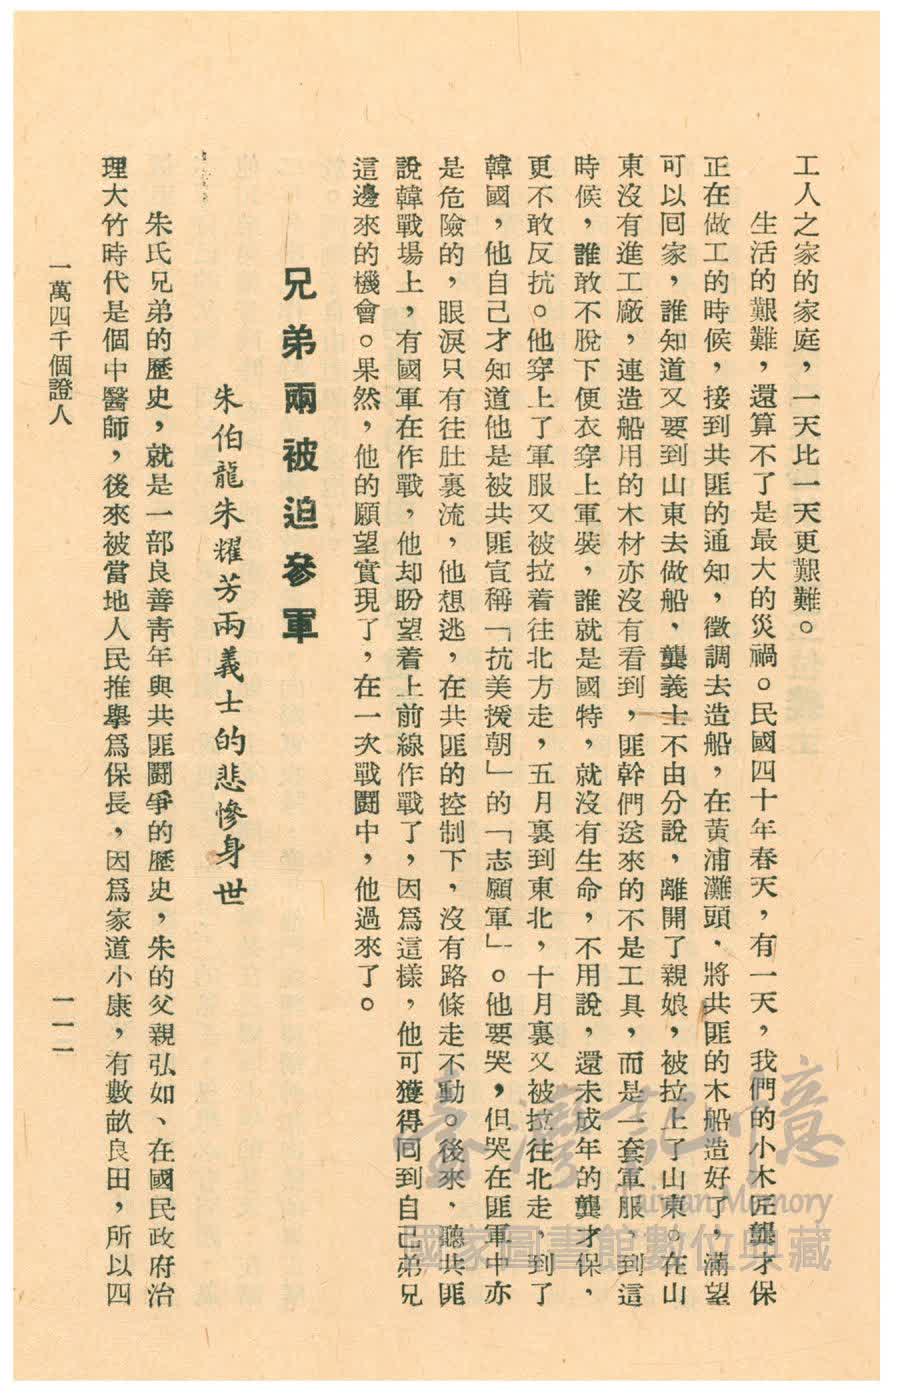 工人之家的家庭，一天比一天更艱難。
生活的艱難，還算不了是最大的災禍。民國四十年春天，有一天，我們的小木匠龔才保
正在做工的時候，接到共匪的通知，徵調去造船，在黃浦灘頭，將共匪的木船造好了，滿望
可以囘家，誰知道又要到山東去做船，龔義士不由分說，離開了親娘，被拉上了山東。在山
東沒有進工廠，連造船用的木材亦沒有看到，匪幹們送來的不是工具，而是一套軍服，到這
時候，誰敢不脫下便衣穿上軍裝，誰就是國特，就沒有生命，不用說，還未成年的龔才保，
更不敢反抗。他穿上了軍服又被拉着往北方走，五月裏到東北，十月裏又被拉往北走，到了
韓國，他自己才知道他是被共匪宣稱「抗美援朝」的「志願軍」。他要哭，但哭在匪軍中亦
是危險的，眼淚只有往肚裏流，他想逃，在共匪的控制下，沒有路條走不動。後來，聽共匪
說韓戰場上，有國軍在作戰，他却盼望着上前線作戰了，因爲這樣，他可獲得囘到自己弟兄
這邊來的機會。果然，他的願望實現了，在一次戰鬪中，他過來了。
兄弟兩被迫參軍
朱伯龍朱耀芳兩義士的悲慘身世
朱氏兄弟的歷史，就是一部良善青年與共匪鬪爭的歷史，朱的父親弘如、在國民政府治
理大竹時代是個中醫師，後來被當地人民推擧爲保長，因爲家道小康，有數畝良田，所以四
一萬四千個證人
一一一
臺灣記憶
Taiwan Memory
國家圖書館數位典藏